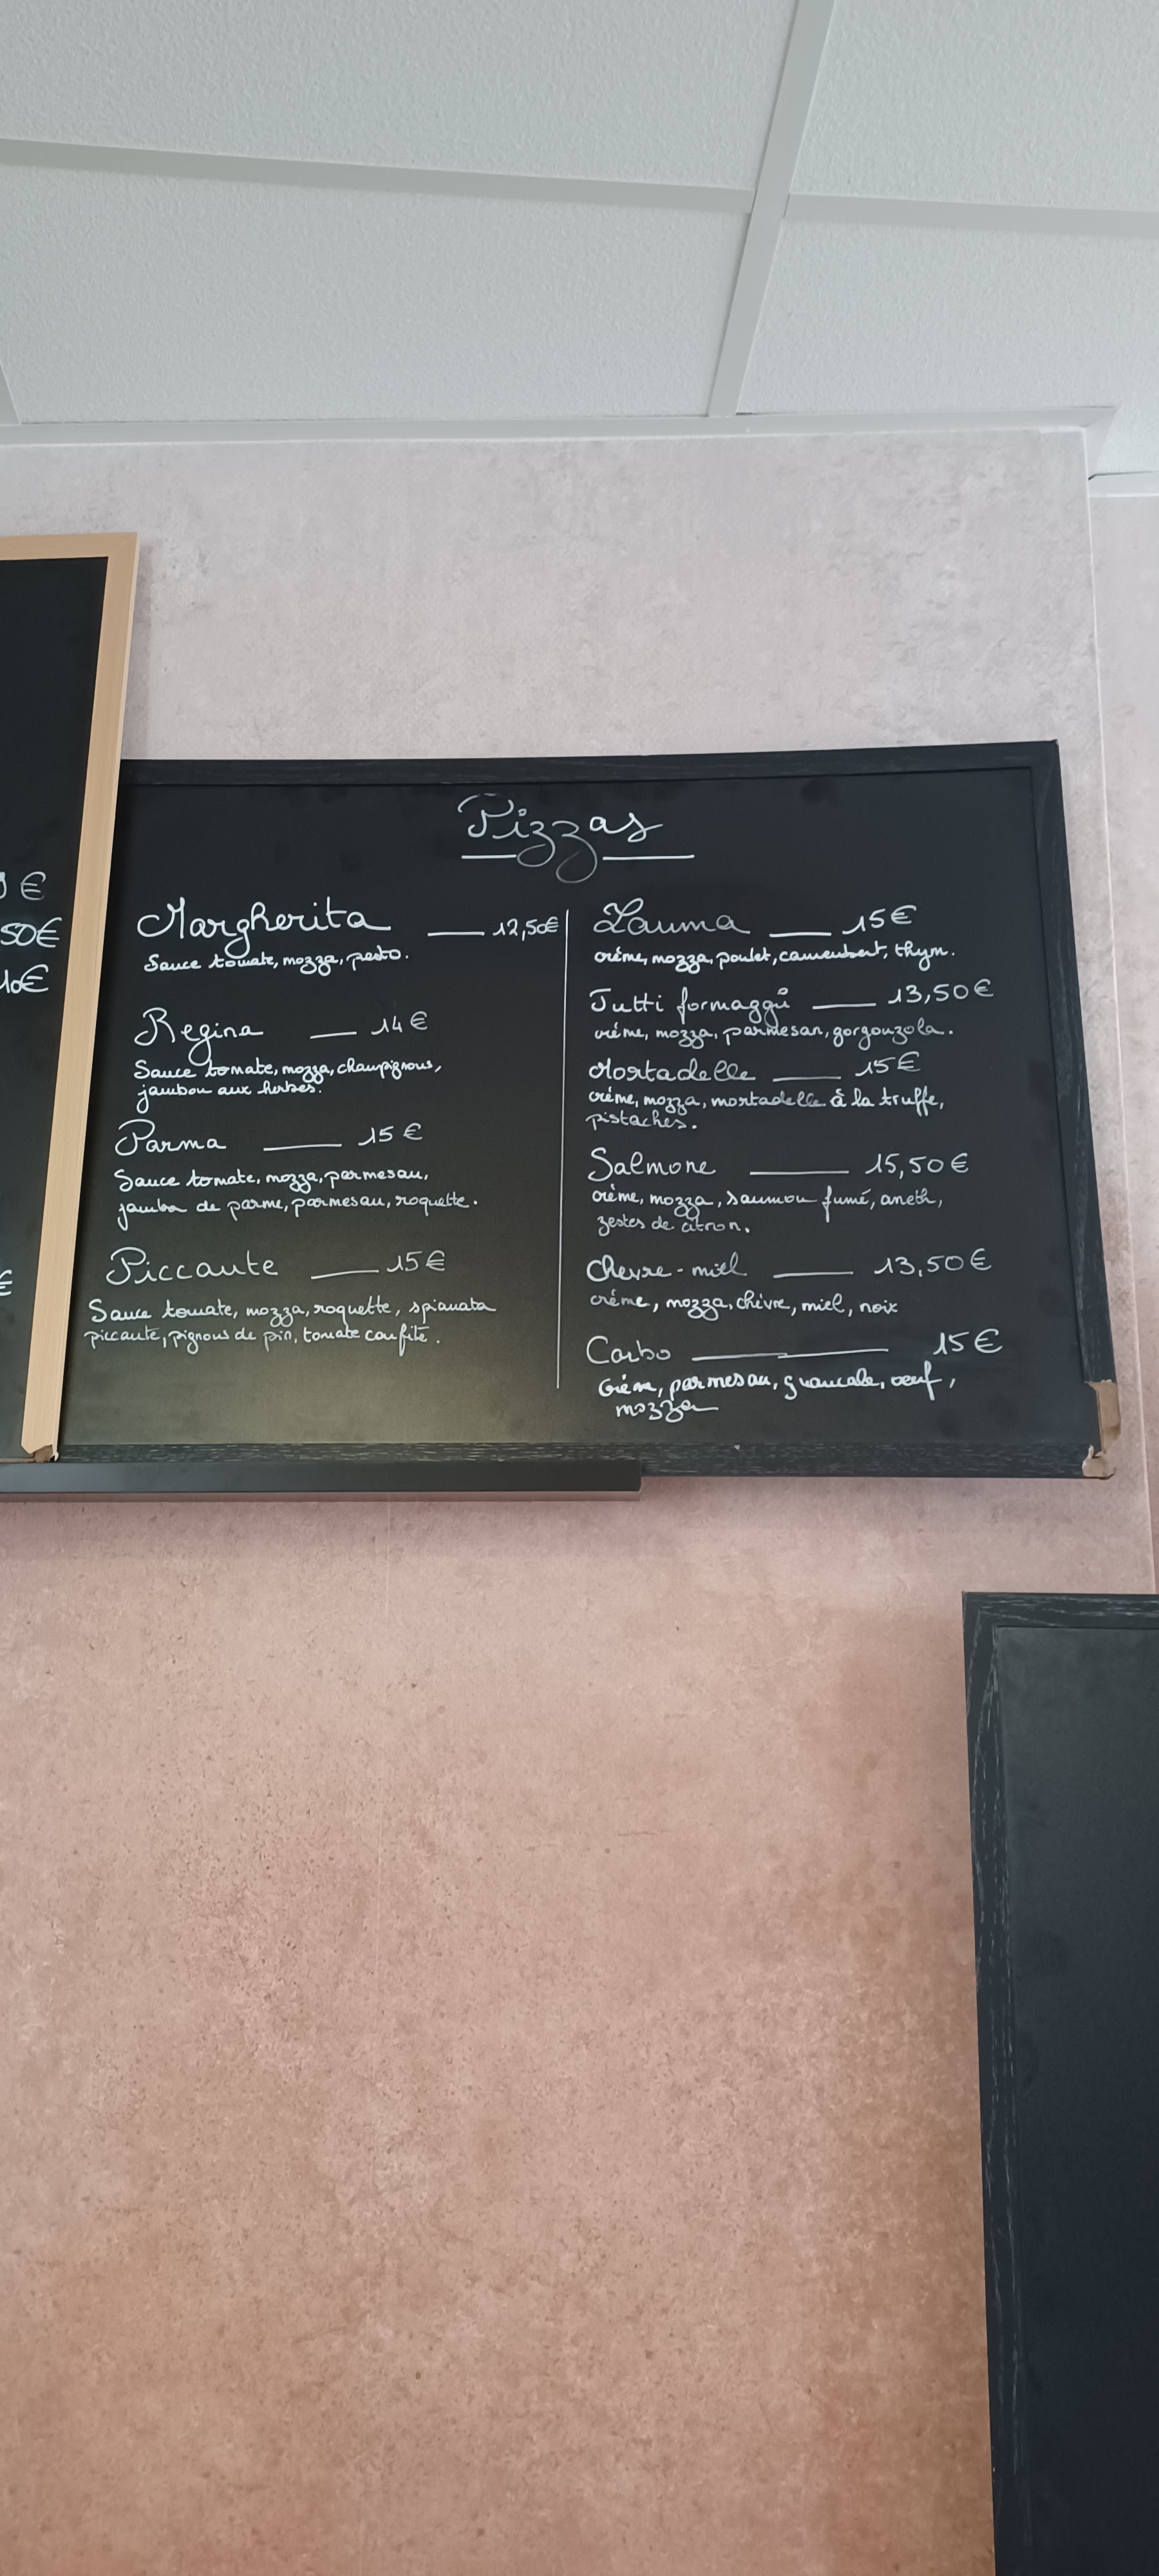 Pizzas
Margherita 12,50€
Sauce tomate, mozza, pesto.
Regina 14€
Sauce tomate, mozza, champignons,
jambon aux herbes.
Parma 15€
Sauce tomate, mozza, parmesan,
jambon de parme, parmesan, roquette.
Piccante 15€
Sauce tomate, mozza, roquette, spianata
piccante, pignons de pin, tomate confite.
15€
crème, mozza, poulet, camembert, thym.
Tutti formaggii 13,50€
crème, mozza, parmesan, gorgonzola.
Mortadelle 15€
crème, mozza, mortadelle à la truffe,
pistaches.
Salmone 15,50€
crème, mozza, saumon fumé, aneth,
zestes de citron.
Chevre-miel 13,50€
crème, mozza, chèvre, miel, noix
Carbo 15€
Crème, parmesan, guancale, oeuf,
mozza
50€
10€